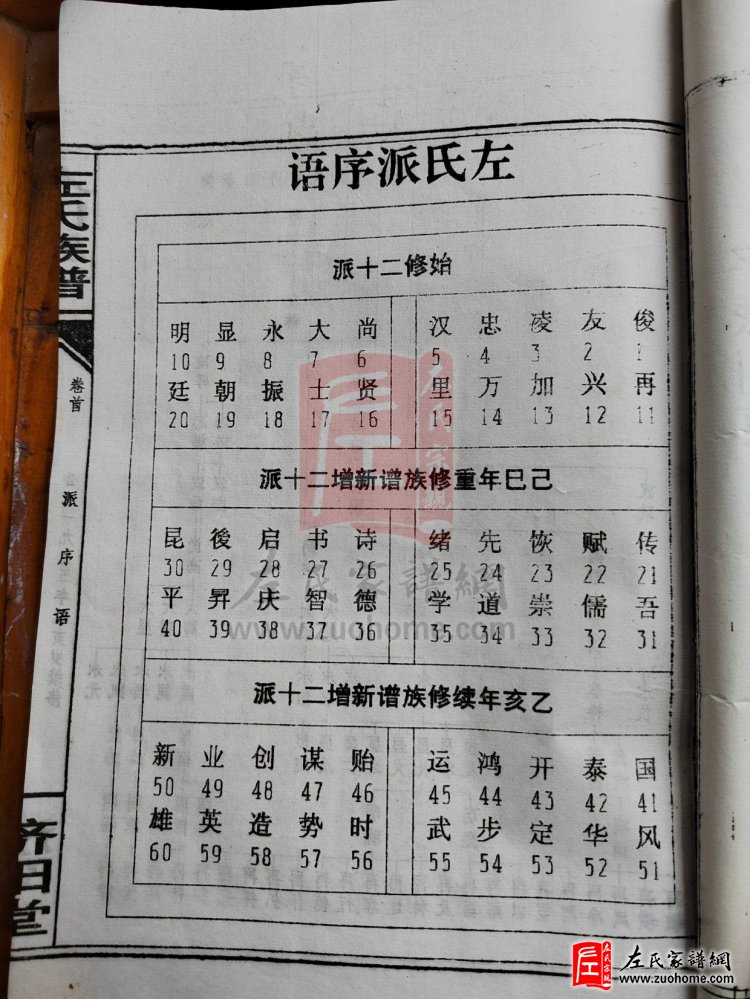 左氏派序语
始修二十派
俊 友 凌 忠 汉 尚 大 永 显 明
1 2 3 4 5 6 7 8 9 10
再 兴 加 万 里 贤 士 振 朝 廷
11 12 13 14 15 16 17 18 19 20
己巳年重修族谱新增二十派
传 赋 恢 先 绪 诗 书 启 後 昆
21 22 23 24 25 26 27 28 29 30
吾 儒 崇 道 学 德 智 庆 昇 平
31 32 33 34 35 36 37 38 39 40
乙亥年续修族谱新增二十派
国 泰 开 鸿 运 贻 谋 创 业 新
41 42 43 44 45 46 47 48 49 50
风 华 定 步 武 时 势 造 英 雄
51 52 53 54 55 56 57 58 59 60
左氏族谱
卷首
派序语
济阳堂
左氏家譜網
www.zuohome.com
左氏家譜網
www.zuohome.com